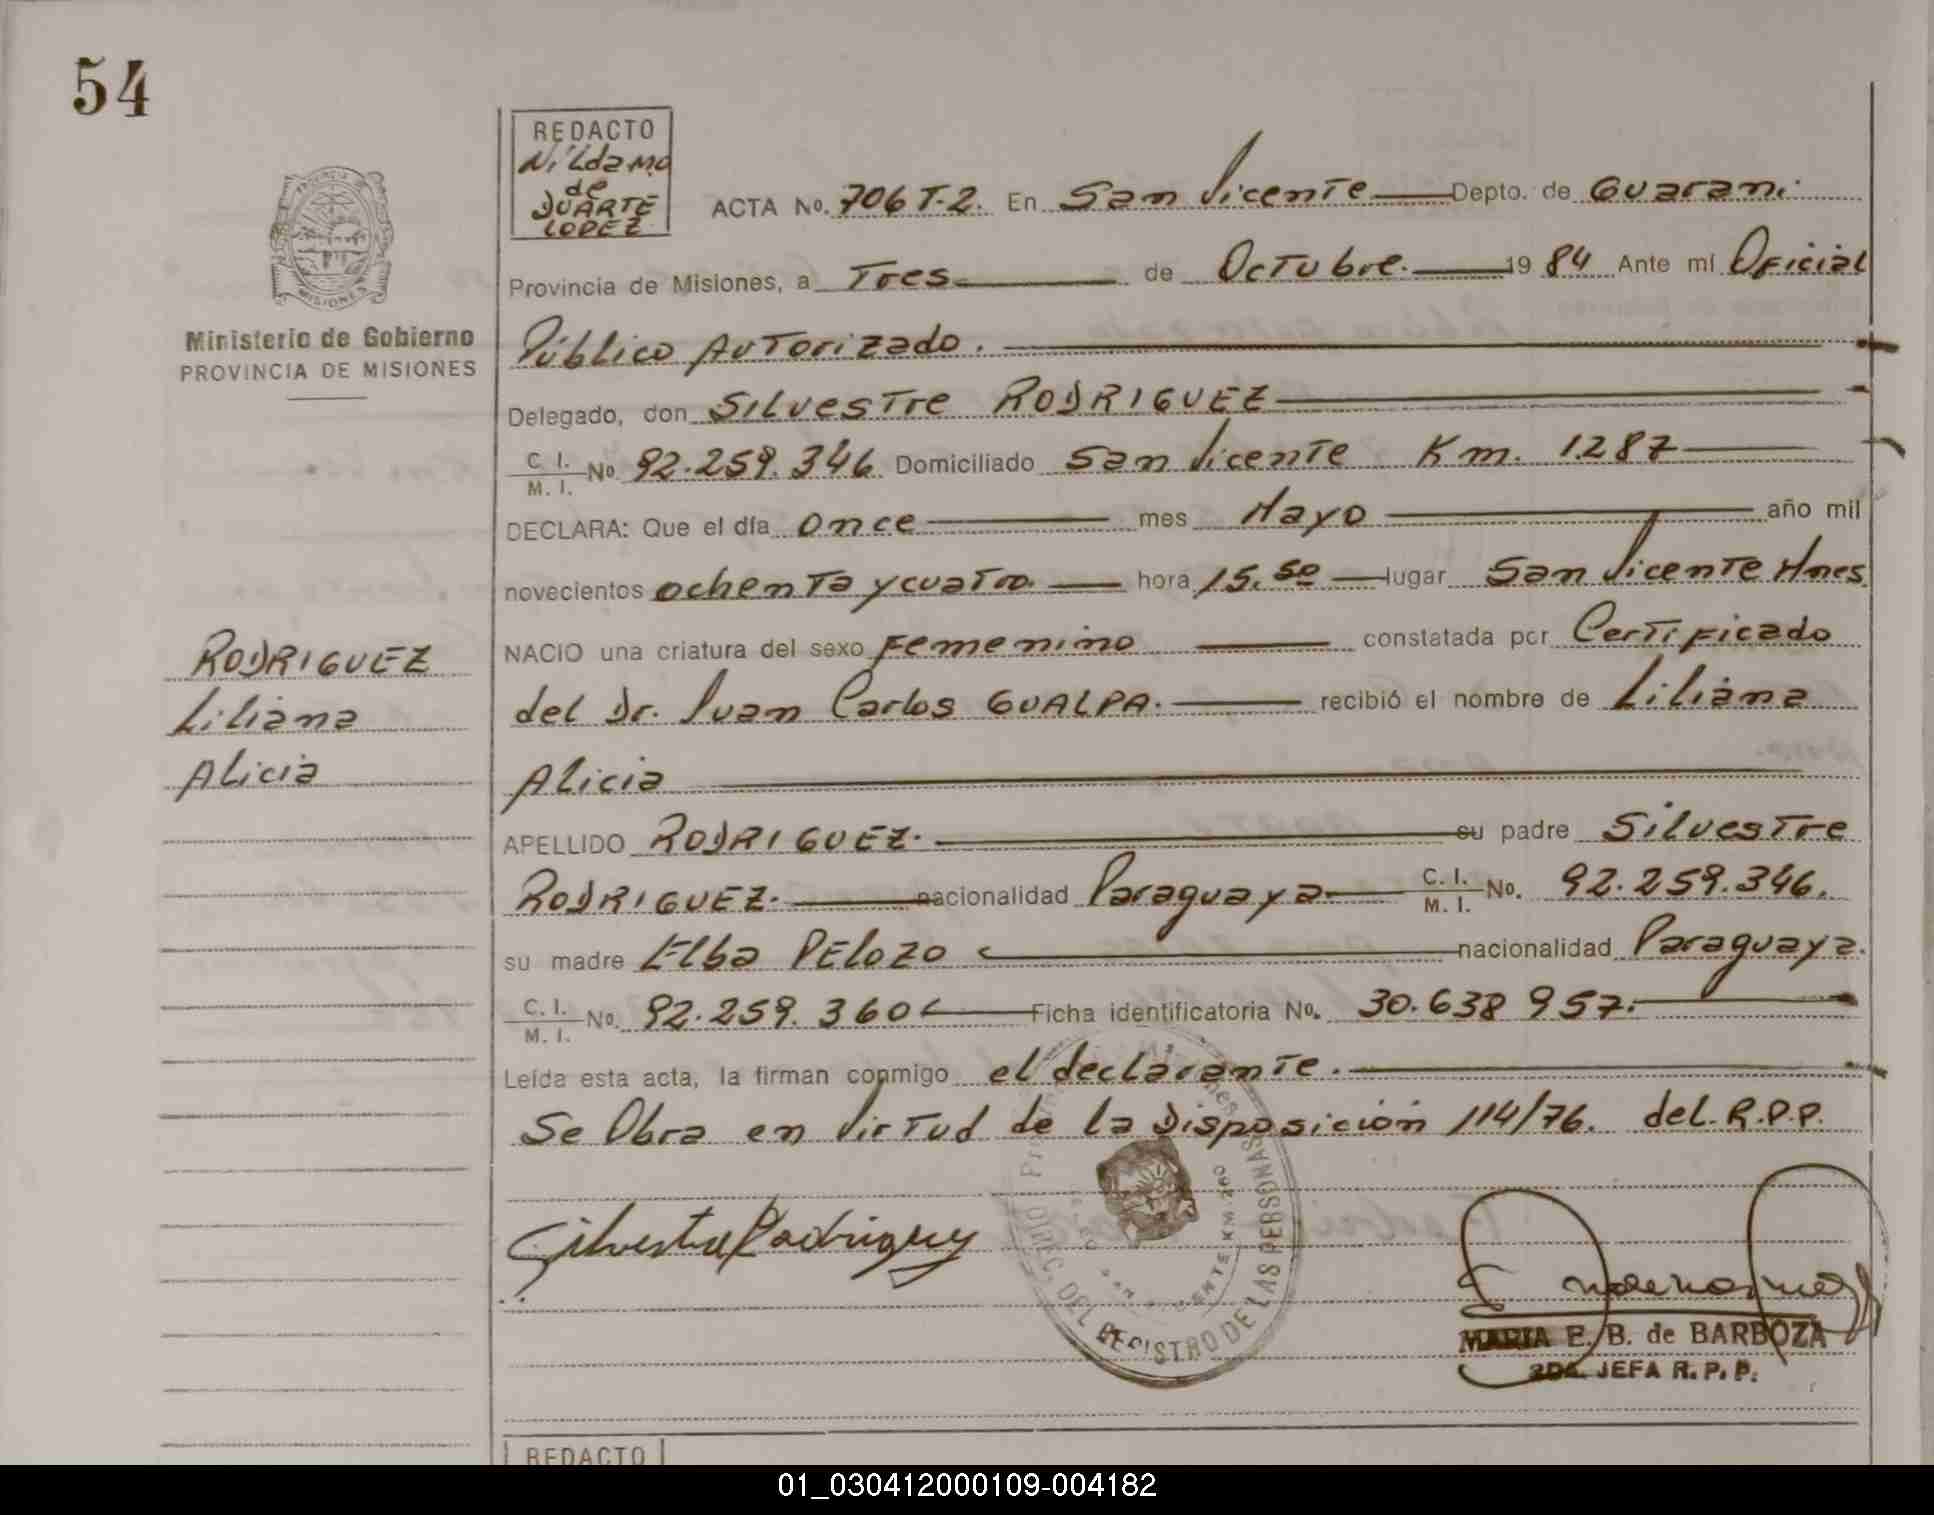 54
REDACTO
Nilda M.
de
DUARTE
LOPEZ
PROVINCIA DE
MISIONES
Ministerio de Gobierno
PROVINCIA DE MISIONES
RODRIGUEZ
Liliana
Alicia
ACTA No. 706 T-2. En San Vicente Depto. de Guarani
Provincia de Misiones, a Tres de Octubre. 19 84 Ante mí Oficial
Público Autorizado.
Delegado, don Silvestre RODRIGUEZ
C. I. / M. I. No. 92.259.346. Domiciliado San Vicente Km. 1.287
DECLARA: Que el día once mes Mayo año mil
novecientos ochenta y cuatro. hora 15.50 lugar San Vicente Mnes
NACIO una criatura del sexo Femenino constatada por Certificado
del Dr. Juan Carlos GUALPA. recibió el nombre de Liliana
Alicia
APELLIDO RODRIGUEZ. su padre Silvestre
RODRIGUEZ. nacionalidad Paraguaya C. I. / M. I. No. 92.259.346.
su madre Elba PELOZO nacionalidad Paraguaya.
C. I. / M. I. No. 92.259.360 Ficha identificatoria No. 30.638 957.
Leída esta acta, la firman conmigo el declarante.
Se Obra en Virtud de la Disposición 114/76. del. R.P.P.
Silvestre Rodriguez
DEL REGISTRO DE LAS PERSONAS
MARIA E. B. de BARBOZA
2DA. JEFA R. P. P.
REDACTO
01_030412000109-004182